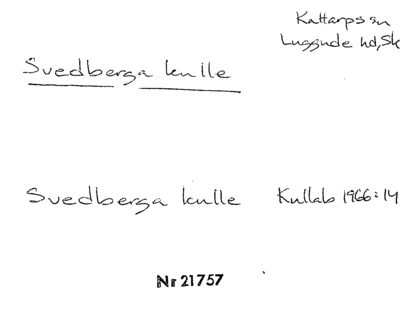 Kattarps sn
Luggude hd, Sk
Svedberga kulle
Svedberga kulle Kullab 1966:14
Nr 21757